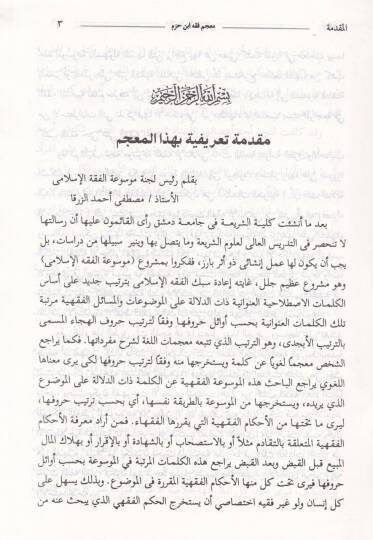 المقدمة معجم فقه ابن حزم ٣
بسم الله الرحمن الرحيم
مقدمة تعريفية بهذا المعجم
بقلم رئيس لجنة موسوعة الفقة الإسلامى
الأستاذ / مصطفى أحمد الزرقا
بعد ما أنشئت كلية الشريعة فى جامعة دمشق رأى القائمون عليها أن رسالتها
لا تنحصر فى التدريس العالى لعلوم الشريعة وما يتصل بها وينير سبيلها من دراسات، بل
يجب أن يكون لها عمل إنشائى ذو أثر بارز، ففكروا بمشروع (موسوعة الفقه الإسلامى)
وهو مشروع عظيم جلل، غايته إعادة سبك الفقه الإسلامى بترتيب جديد على أساس
الكلمات الاصطلاحية العنوانية ذات الدلالة على الموضوعات والمسائل الفقهية مرتبة
تلك الكلمات العنوانية بحسب أوائل حروفها وفقًا لترتيب حروف الهجاء المسمى
بالترتيب الأبجدى، وهو الترتيب الذى تتبعه معجمات اللغة لشرح مفرداتها. فكما يراجع
الشخص معجمًا لغويًا عن كلمة ويستخرجها منه وفقًا لترتيب حروفها لكى يرى معناها
اللغوى يراجع الباحث هذه الموسوعة الفقهية عن الكلمة ذات الدلالة على الموضوع
الذى يريده، ويستخرجها من الموسوعة بالطريقة نفسها، أى بحسب ترتيب حروفها،
ليرى ما تحتها من الأحكام الفقهية التي يقررها الفقهاء. فمن أراد معرفة الأحكام
الفقهية المتعلقة بالتقادم مثلاً أو بالاستصحاب أو بالشهادة أو بالإقرار أو بهلاك المال
المبيع قبل القبض وبعد القبض يراجع هذه الكلمات المرتبة في الموسوعة بحسب أوائل
حروفها فيرى تحت كل منها الأحكام الفقهية المقررة فى الموضوع. وبذلك يسهل على
كل إنسان ولو غير فقيه اختصاصي أن يستخرج الحكم الفقهي الذي يبحث عنه من